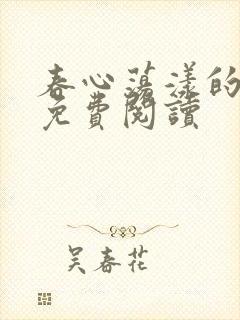 春心荡漾的
免費閱讀
吴春花